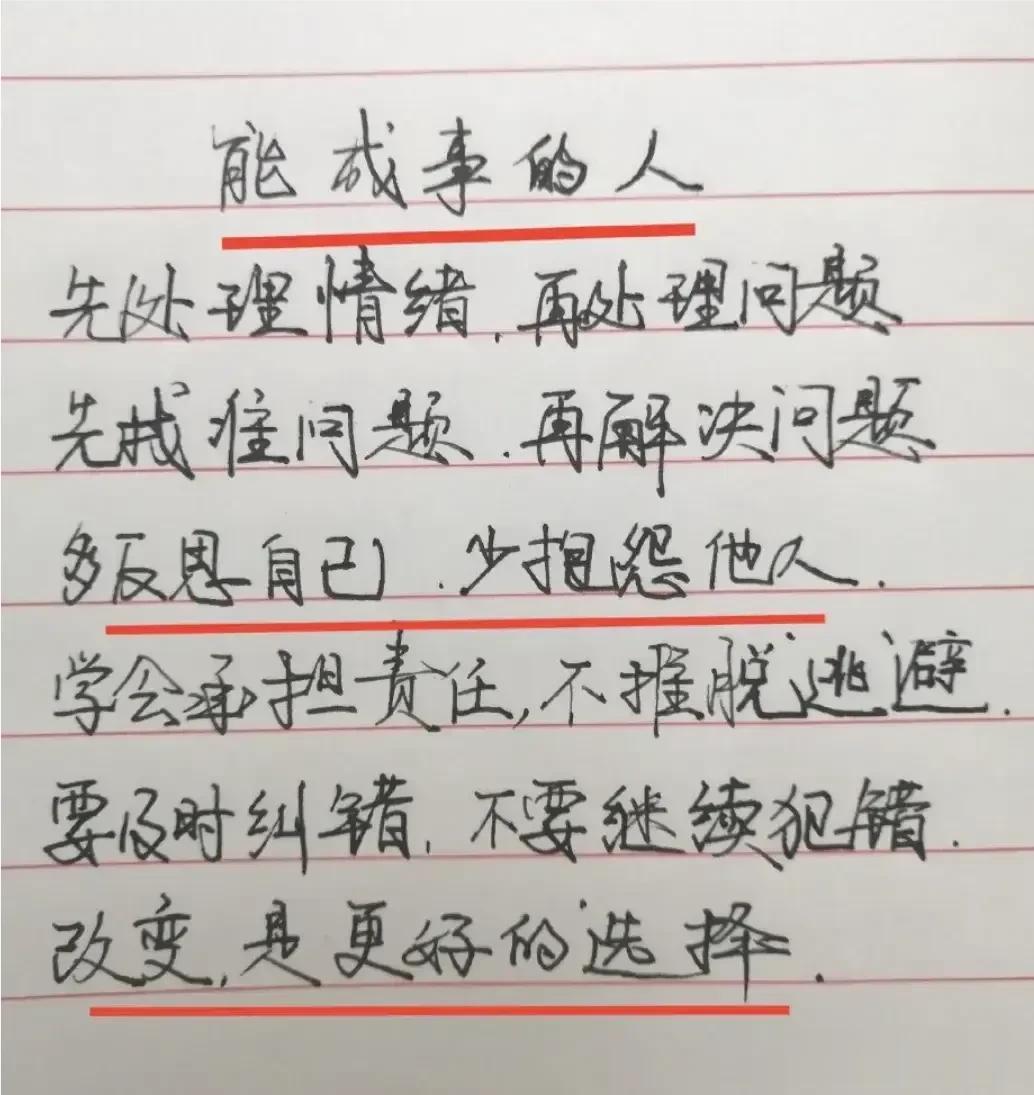 能成事的人
先处理情绪.再处理问题
先找准问题.再解决问题
多反思自己.少抱怨他人.
学会承担责任,不推脱逃避.
要及时纠错.不要继续犯错.
改变,是更好的选择.